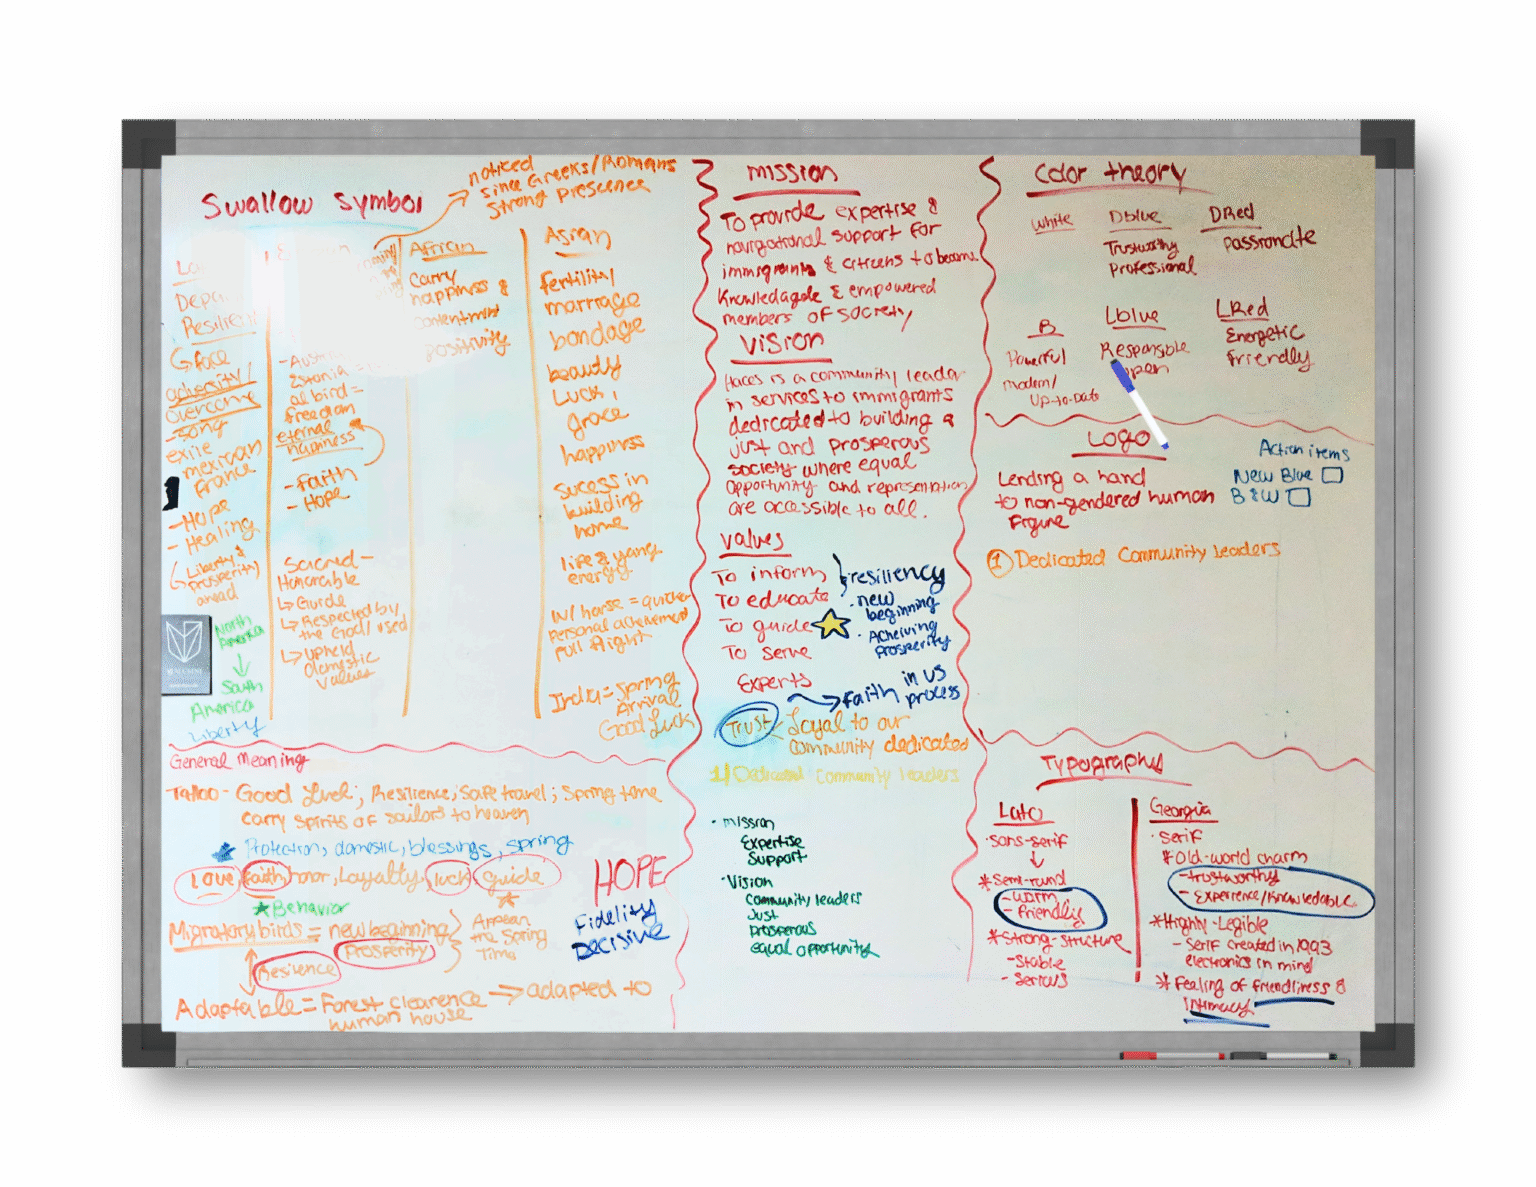 Swallow Symbol
noticed
since Greeks/Romans
Strong Prescence
Resilient
↳ face
adversity/
overcome
-song
exile
mexican
France
- Hope
- Healing
↳ Liberty &
Prosperity
ahead
North
America
↓
South
America
Liberty
Estonia
al bird =
freedom
eternal
happiness
- Faith
- Hope
Sacred -
Honorable
↳ Guide
↳ Respected by
the God/used
↳ upheld
domestic
values
African
Carry
happiness &
contentment
positivity
Asian
fertility
marriage
bondage
beauty
Luck,
grace
happiness
Sucess in
building
home
life & yang
energy
w/ horse = quicker
Personal achievement
full flight
India = Spring
Arrival
Good Luck
General Meaning
Tattoo - Good Luck; Resilience; Safe travel; Spring time
carry spirits of sailors to heaven
★ Protection, domestic, blessings, spring
Love, faith, honor, Loyalty, luck, guide
★ Behavior
Migratory birds = new beginning
prosperity
Appear
the Spring
Time
Resilence
Adaptable = Forest clearence → adapted to
human house
HOPE
Fidelity
Decisive
mission
To provide expertise &
navigational support for
immigrants & citizens to become
Knowledagable & empowered
members of society
Vision
Haces is a community leader
in services to immigrants
dedicated to building a
just and prosperous
society where equal
opportunity and representation
are accessible to all.
Values
To inform
To educate
To guide
To serve
Experts
resiliency
· new
beginning
· Acheiving
Prosperity
→ faith in US
process
Trust - Loyal to our
community dedicated
1) Dedicated Community leaders
· mission
Expertise
Support
· Vision
Community leaders
Just
prosperous
equal opportunity
Color theory
White
Dblue
Trustworthy
Professional
DRed
passionate
B
Powerful
modern/
Up-to-date
Lblue
Responsible
open
LRed
Energetic
Friendly
Logo
Lending a hand
to non-gendered human
Figure
Action items
New Blue □
B & W □
① Dedicated Community leaders
Typography
Lato
·sans-serif
↓
* Semi-round
- warm
- friendly
* Strong-structure
- Stable
- Serious
Georgia
·serif
* Old-world charm
- trustworthy
- Experience/Knowledable
* Highly-legible
- Serif created in 1993
electronics in mind
* Fealing of friendliness &
intimacy